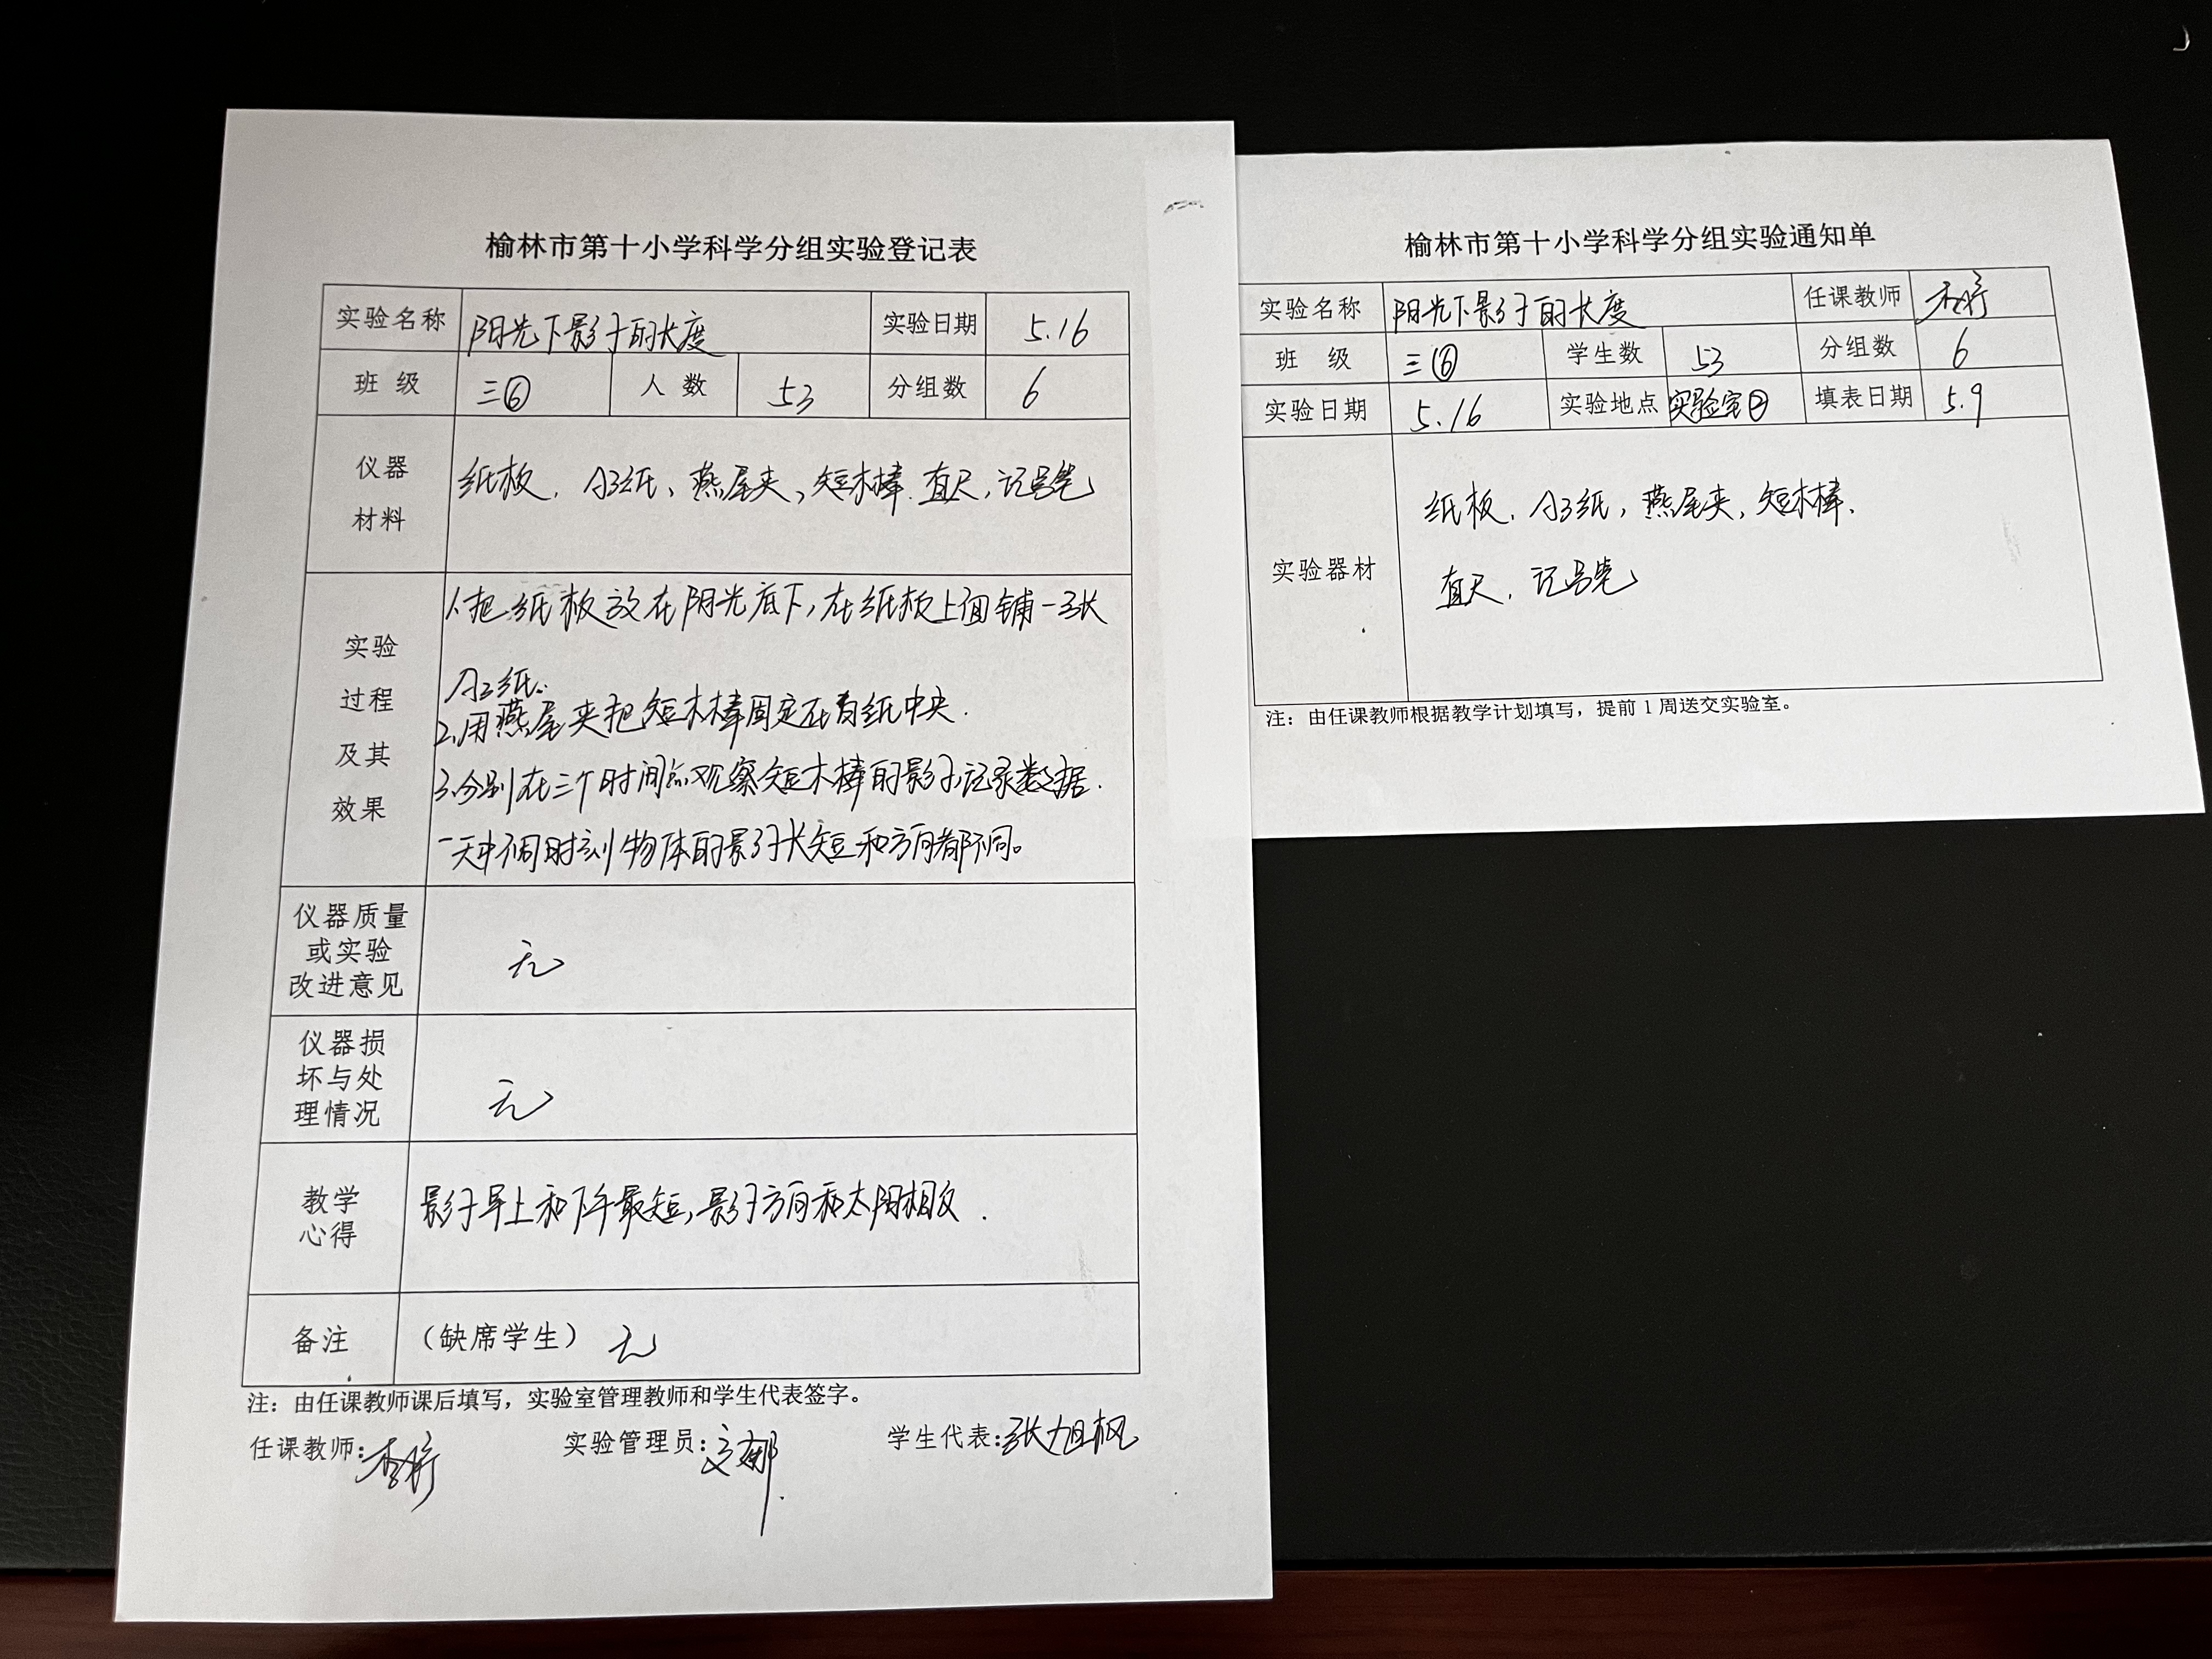 榆林市第十小学科学分组实验登记表
实验名称 阳光下影子的长度 实验日期 5.16
班 级 三⑥ 人 数 53 分组数 6
仪器
材料
纸板、A3纸、燕尾夹、短木棒、直尺、记号笔
实验
过程
及其
效果
1.把纸板放在阳光底下,在纸板上面铺一张
A3纸.
2.用燕尾夹把短木棒固定在有纸中央.
3.分别在三个时间点观察短木棒的影子,记录数据.
一天中不同时刻物体的影子长短和方向都不同。
仪器质量
或实验
改进意见
无
仪器损
坏与处
理情况
无
教学
心得
影子早上和下午最短,影子方向和太阳相反.
备注 (缺席学生) 无
注:由任课教师课后填写,实验室管理教师和学生代表签字。
任课教师: 实验管理员: 学生代表:张旭枫
榆林市第十小学科学分组实验通知单
实验名称 阳光下影子的长度 任课教师
班 级 三⑥ 学生数 53 分组数 6
实验日期 5.16 实验地点 实验室② 填表日期 5.9
实验器材
纸板、A3纸,燕尾夹,短木棒.
直尺、记号笔
注:由任课教师根据教学计划填写,提前1周送交实验室。